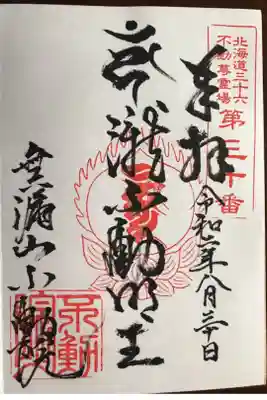 北海道三十六
不動尊霊場
第三十番
奉拝
令和二年八月三十日
瀧不動明王
山不動院
不動